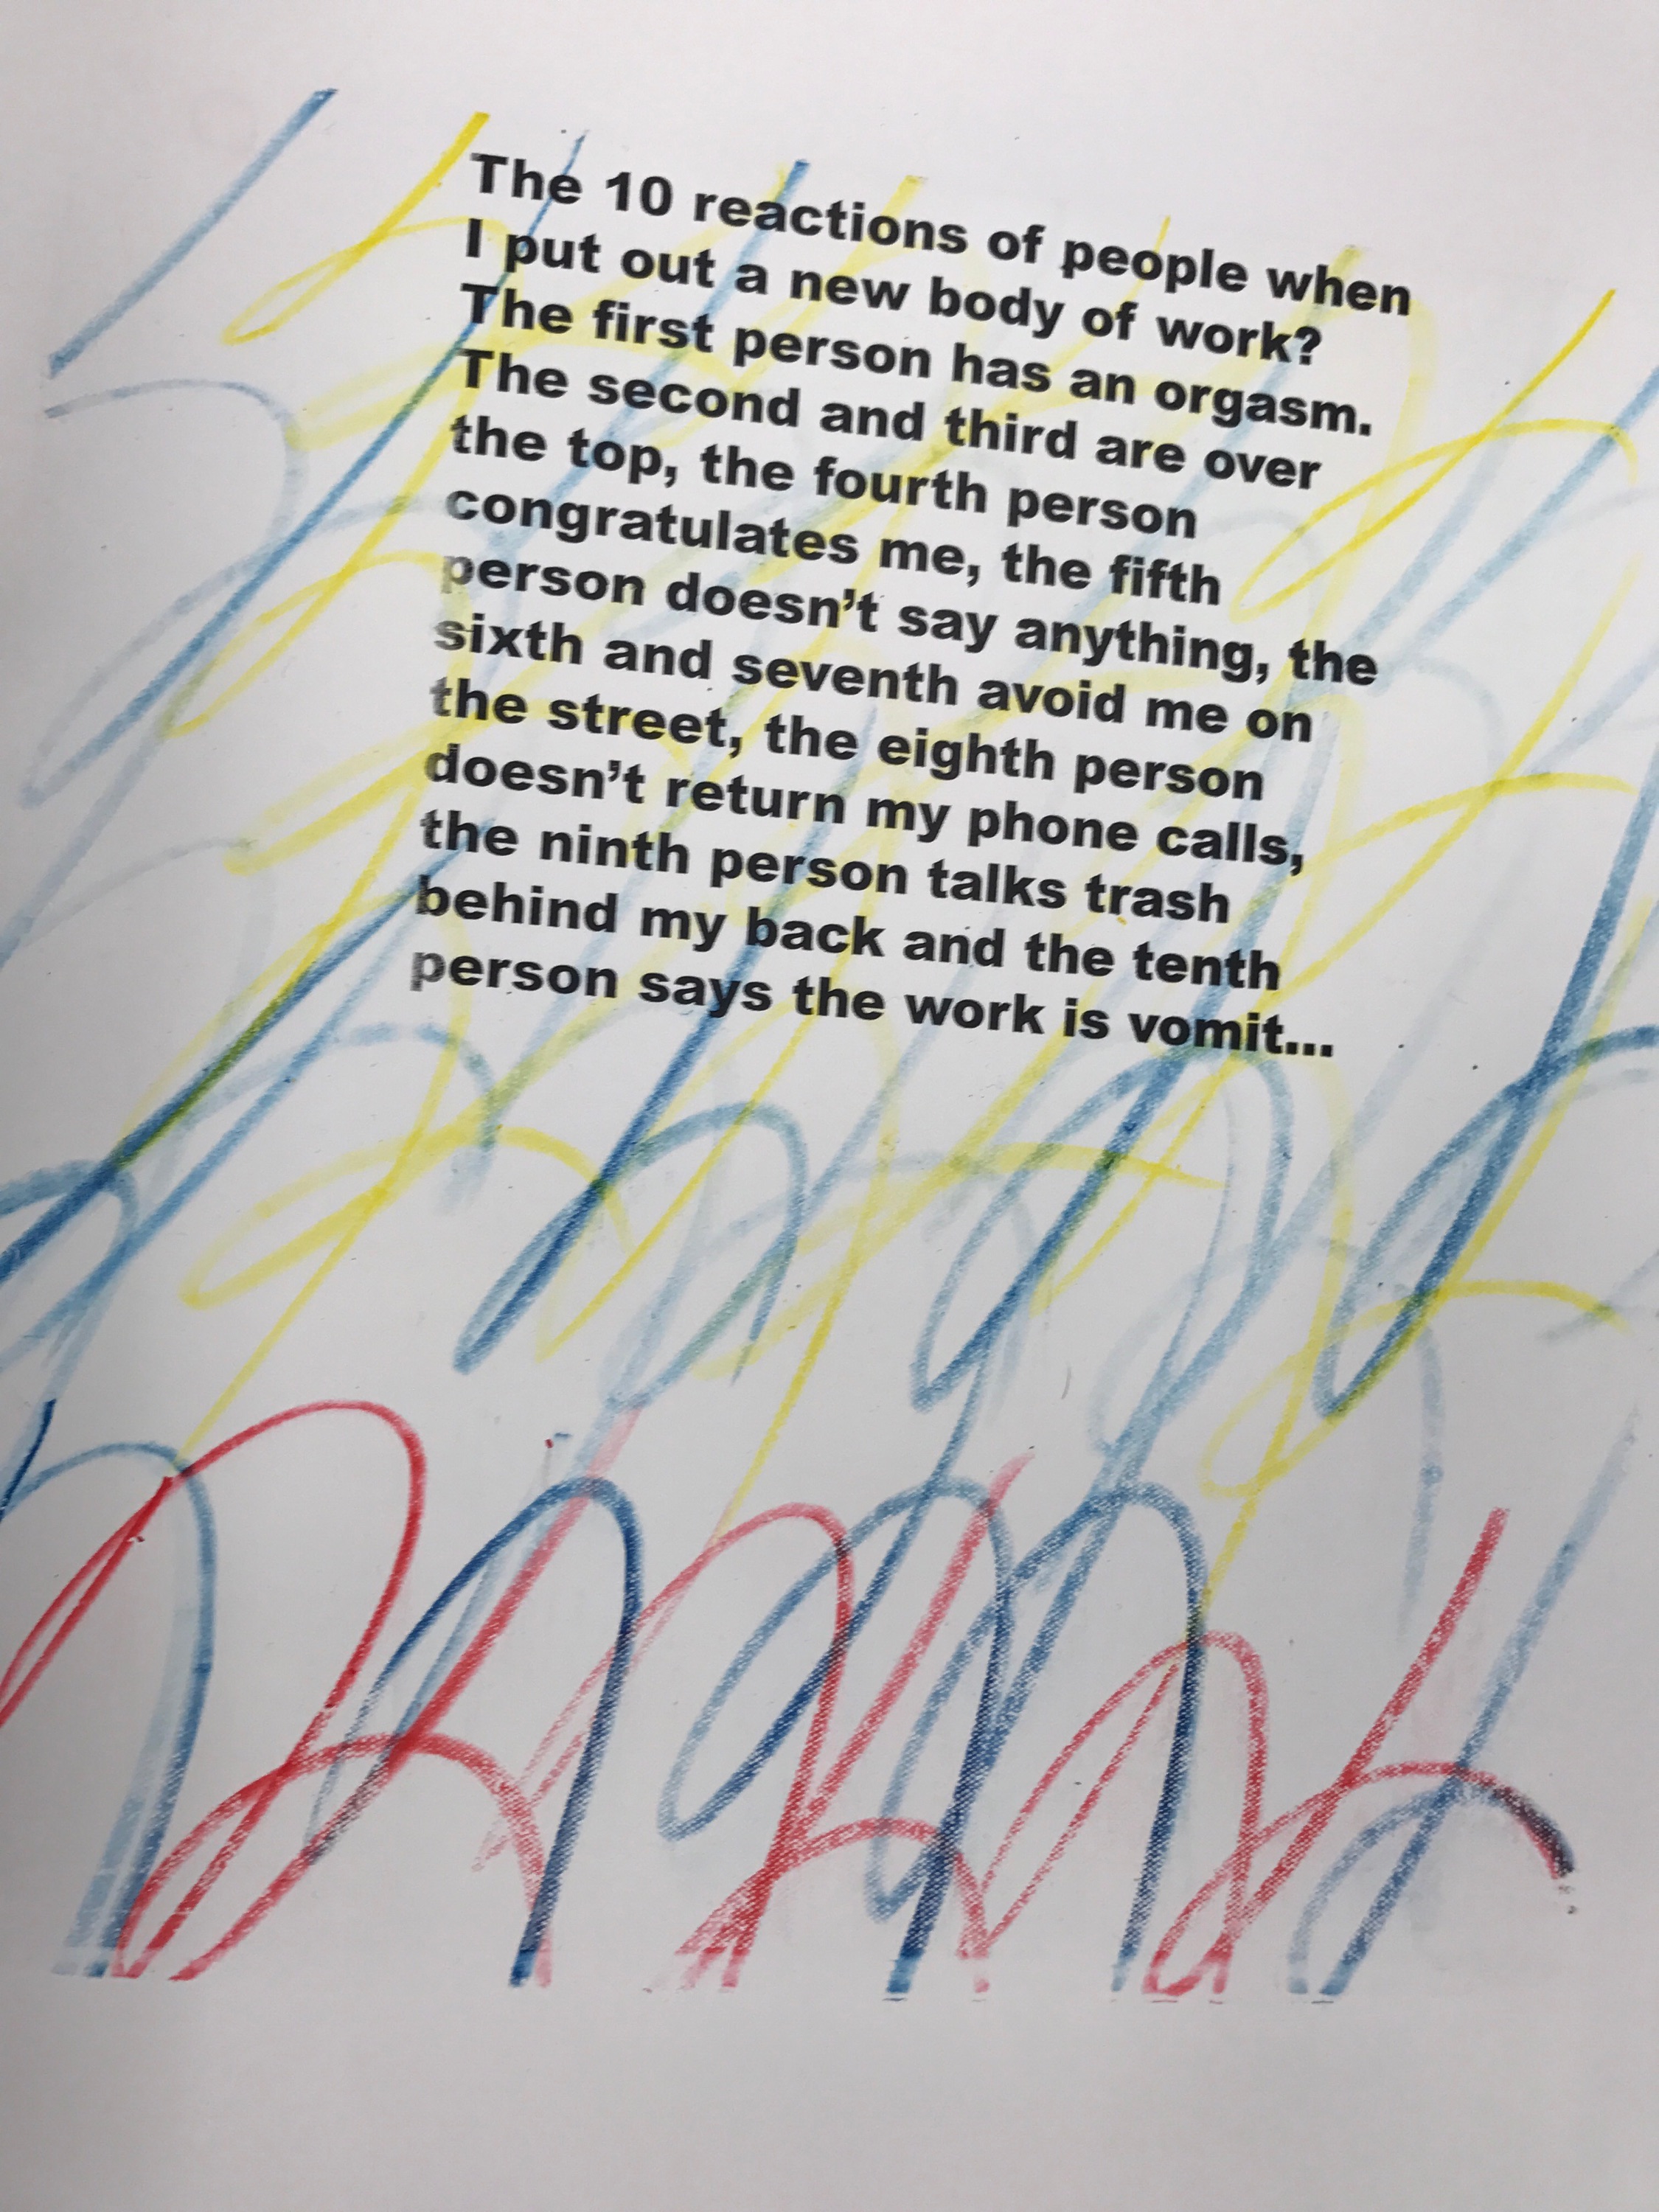 The 10 reactions of people when
I put out a new body of work?
The first person has an orgasm.
The second and third are over
the top, the fourth person
congratulates me, the fifth
person doesn’t say anything, the
sixth and seventh avoid me on
the street, the eighth person
doesn’t return my phone calls,
the ninth person talks trash
behind my back and the tenth
person says the work is vomit...